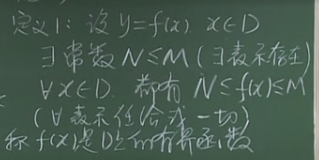 定义1: 设 y=f(x). x∈D
∃常数 N≤M (∃表示存在)
∀x∈D. 都有 N≤f(x)≤M
(∀表示任给或一切)
称 f(x)是D上的有界函数